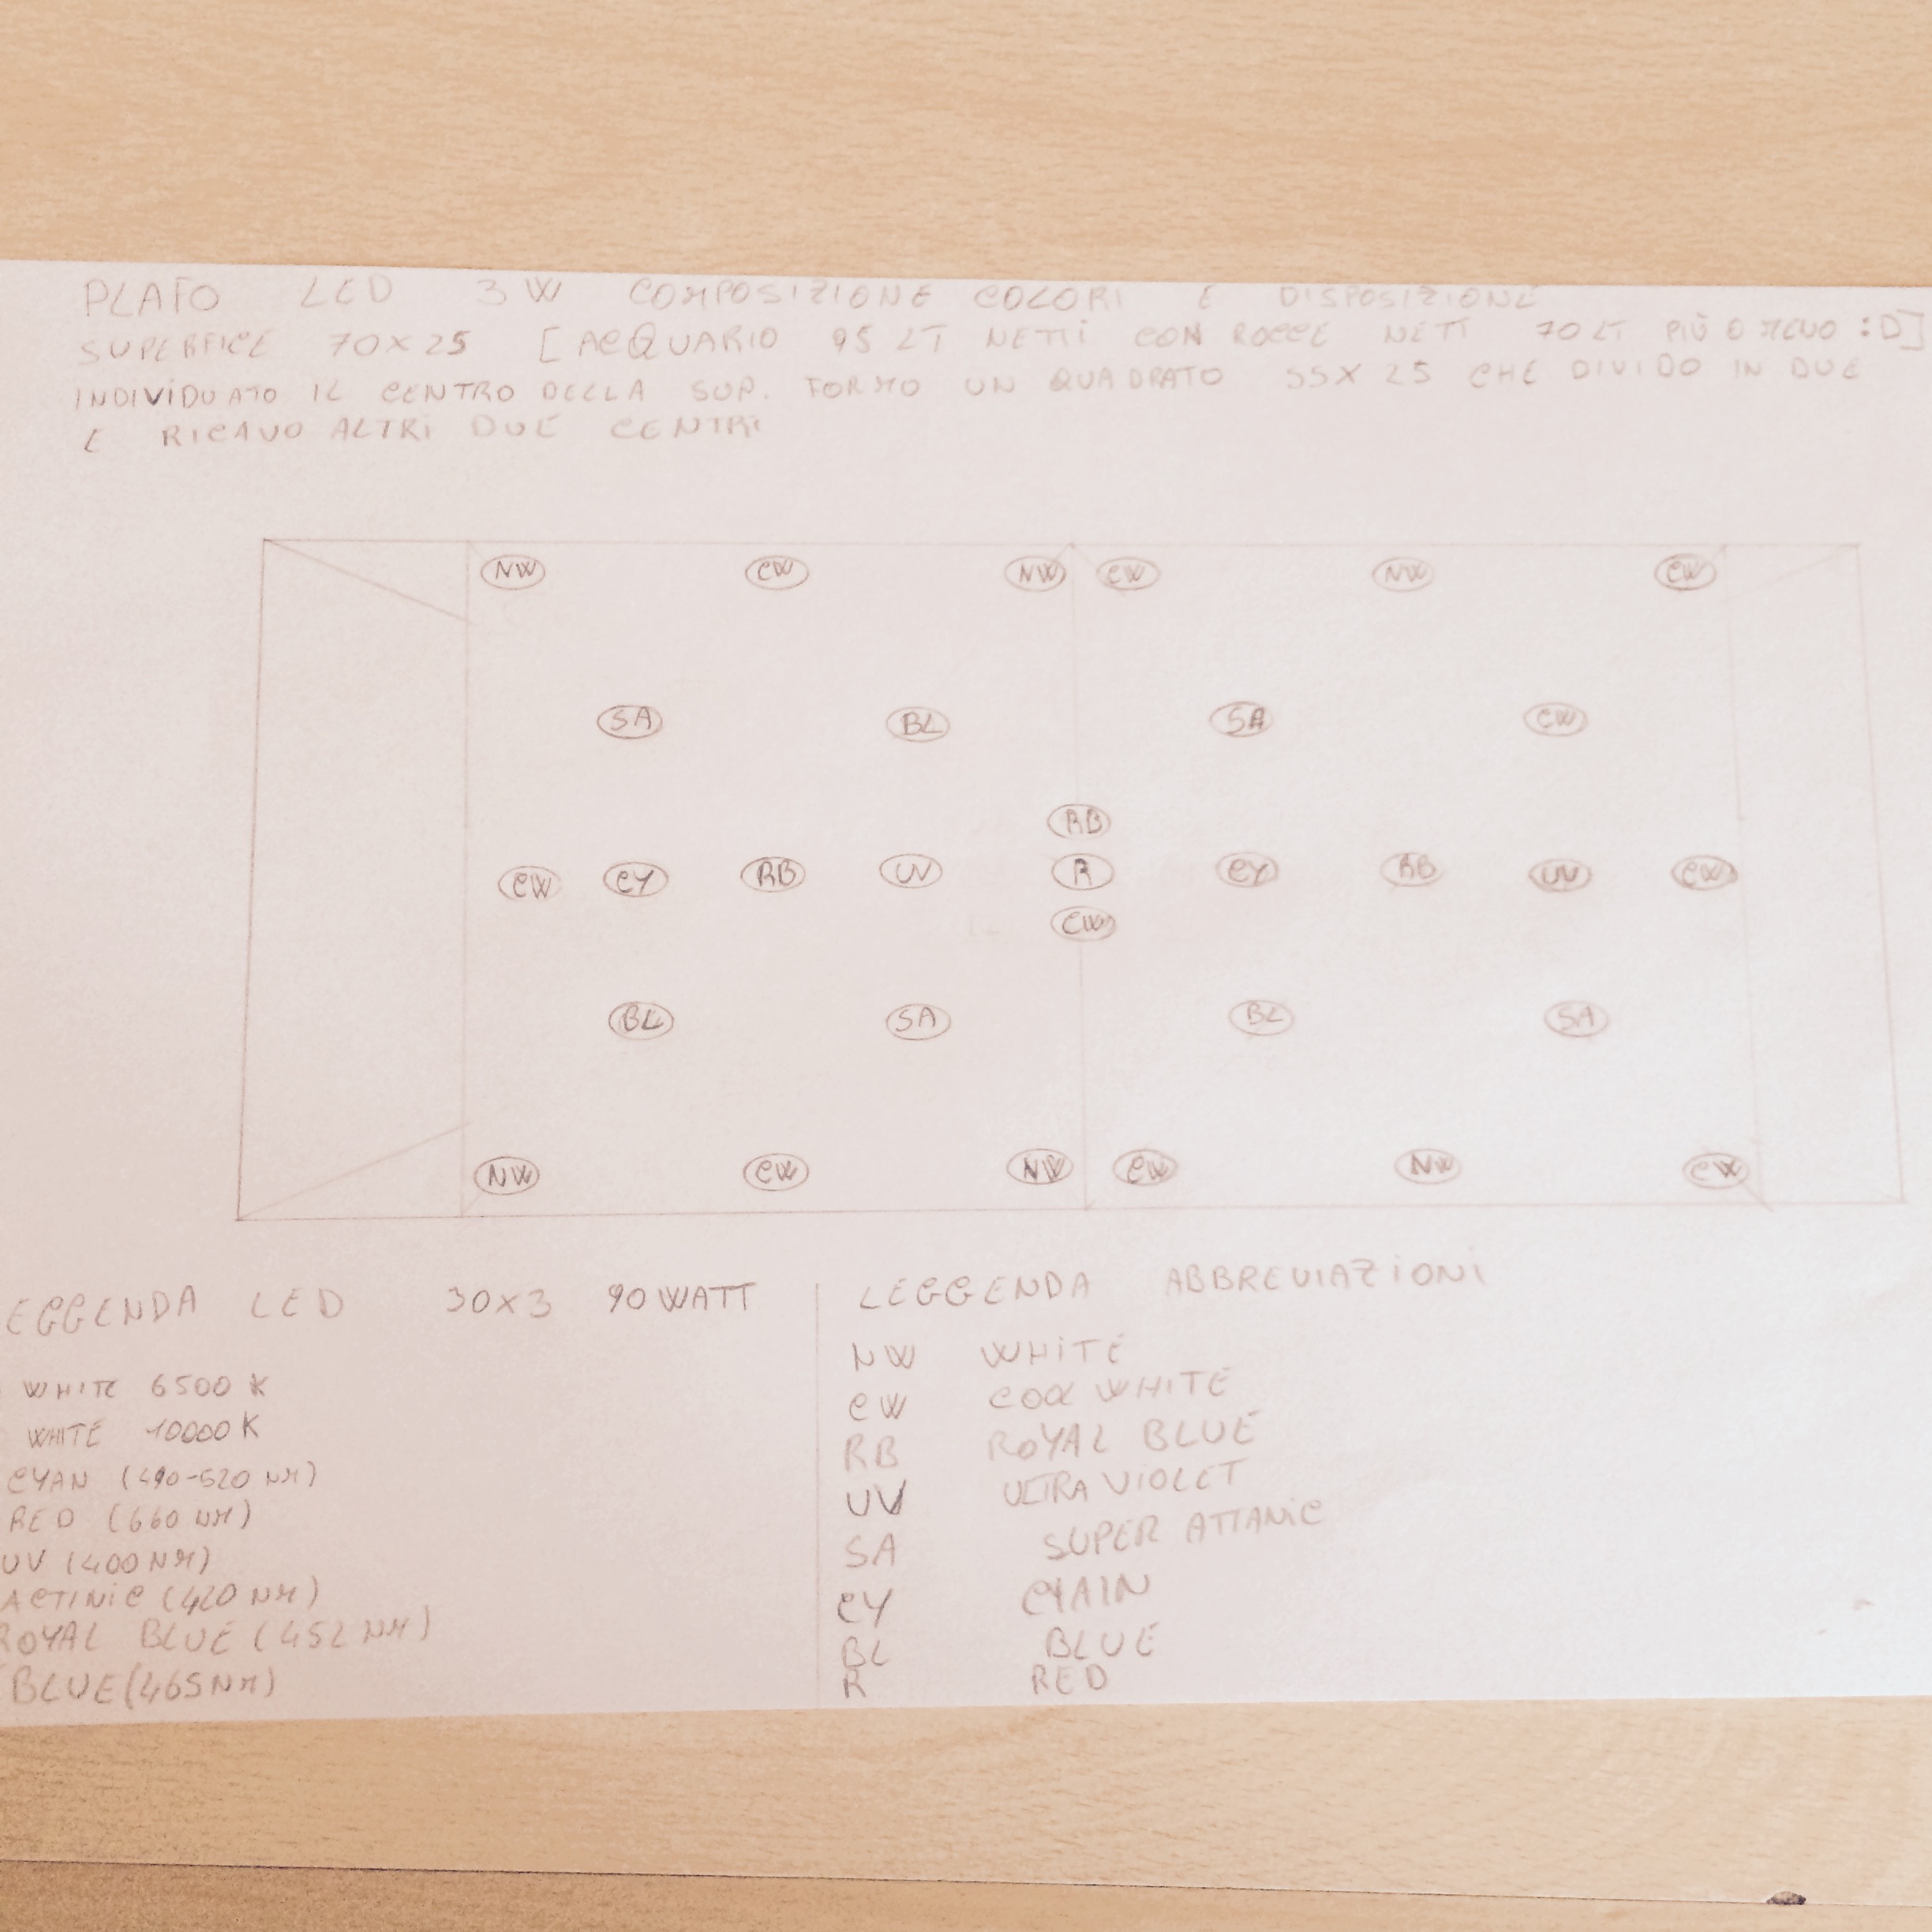 PLAFO LED 3W COMPOSIZIONE COLORI E DISPOSIZIONE
SUPERFICE 70X25 [ACQUARIO 95 LT NETTI CON ROCCE NETTI 70 LT PIÙ O MENO :D]
INDIVIDUATO IL CENTRO DELLA SUP. FORMO UN QUADRATO 55X25 CHE DIVIDO IN DUE
E RICAVO ALTRI DUE CENTRI
NW CW NW CW NW CW
SA BL SA CW
RB
CW CY RB UV R CY RB UV CW
CW
BL SA BL SA
NW CW NW CW NW CW
EGGENDA LED 30X3 90 WATT
WHITE 6500 K
WHITE 10000 K
CYAN (490-520 NM)
RED (660 NM)
UV (400 NM)
ACTINIC (420 NM)
ROYAL BLUE (452 NM)
BLUE (465 NM)
LEGGENDA ABBREVIAZIONI
NW WHITE
CW COOL WHITE
RB ROYAL BLUE
UV ULTRA VIOLET
SA SUPER ATTANIC
CY CYAIN
BL BLUE
R RED